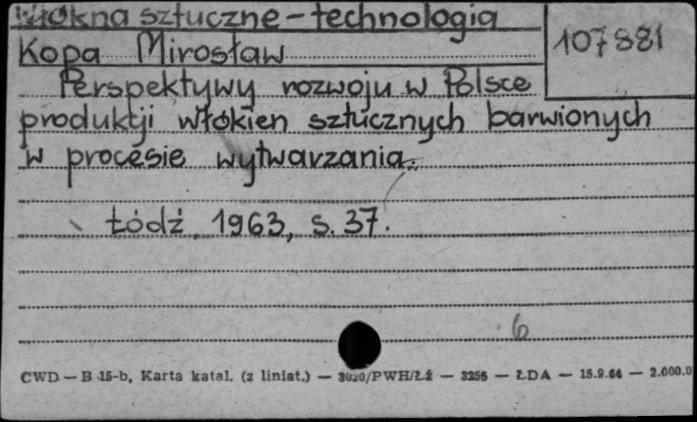 Włókna sztuczne – technologia
107881
Kopa Mirosław
Perspektywy rozwoju w Polsce
produkcji włókien sztucznych barwionych
w procesie wytwarzania.
Łódź, 1963, s. 37.
6
CWD — B 15-b, Karta katal. (z liniat.) — 3620/PWH/Łź — 3256 — ŁDA — 15.9.64 — 2.000.0